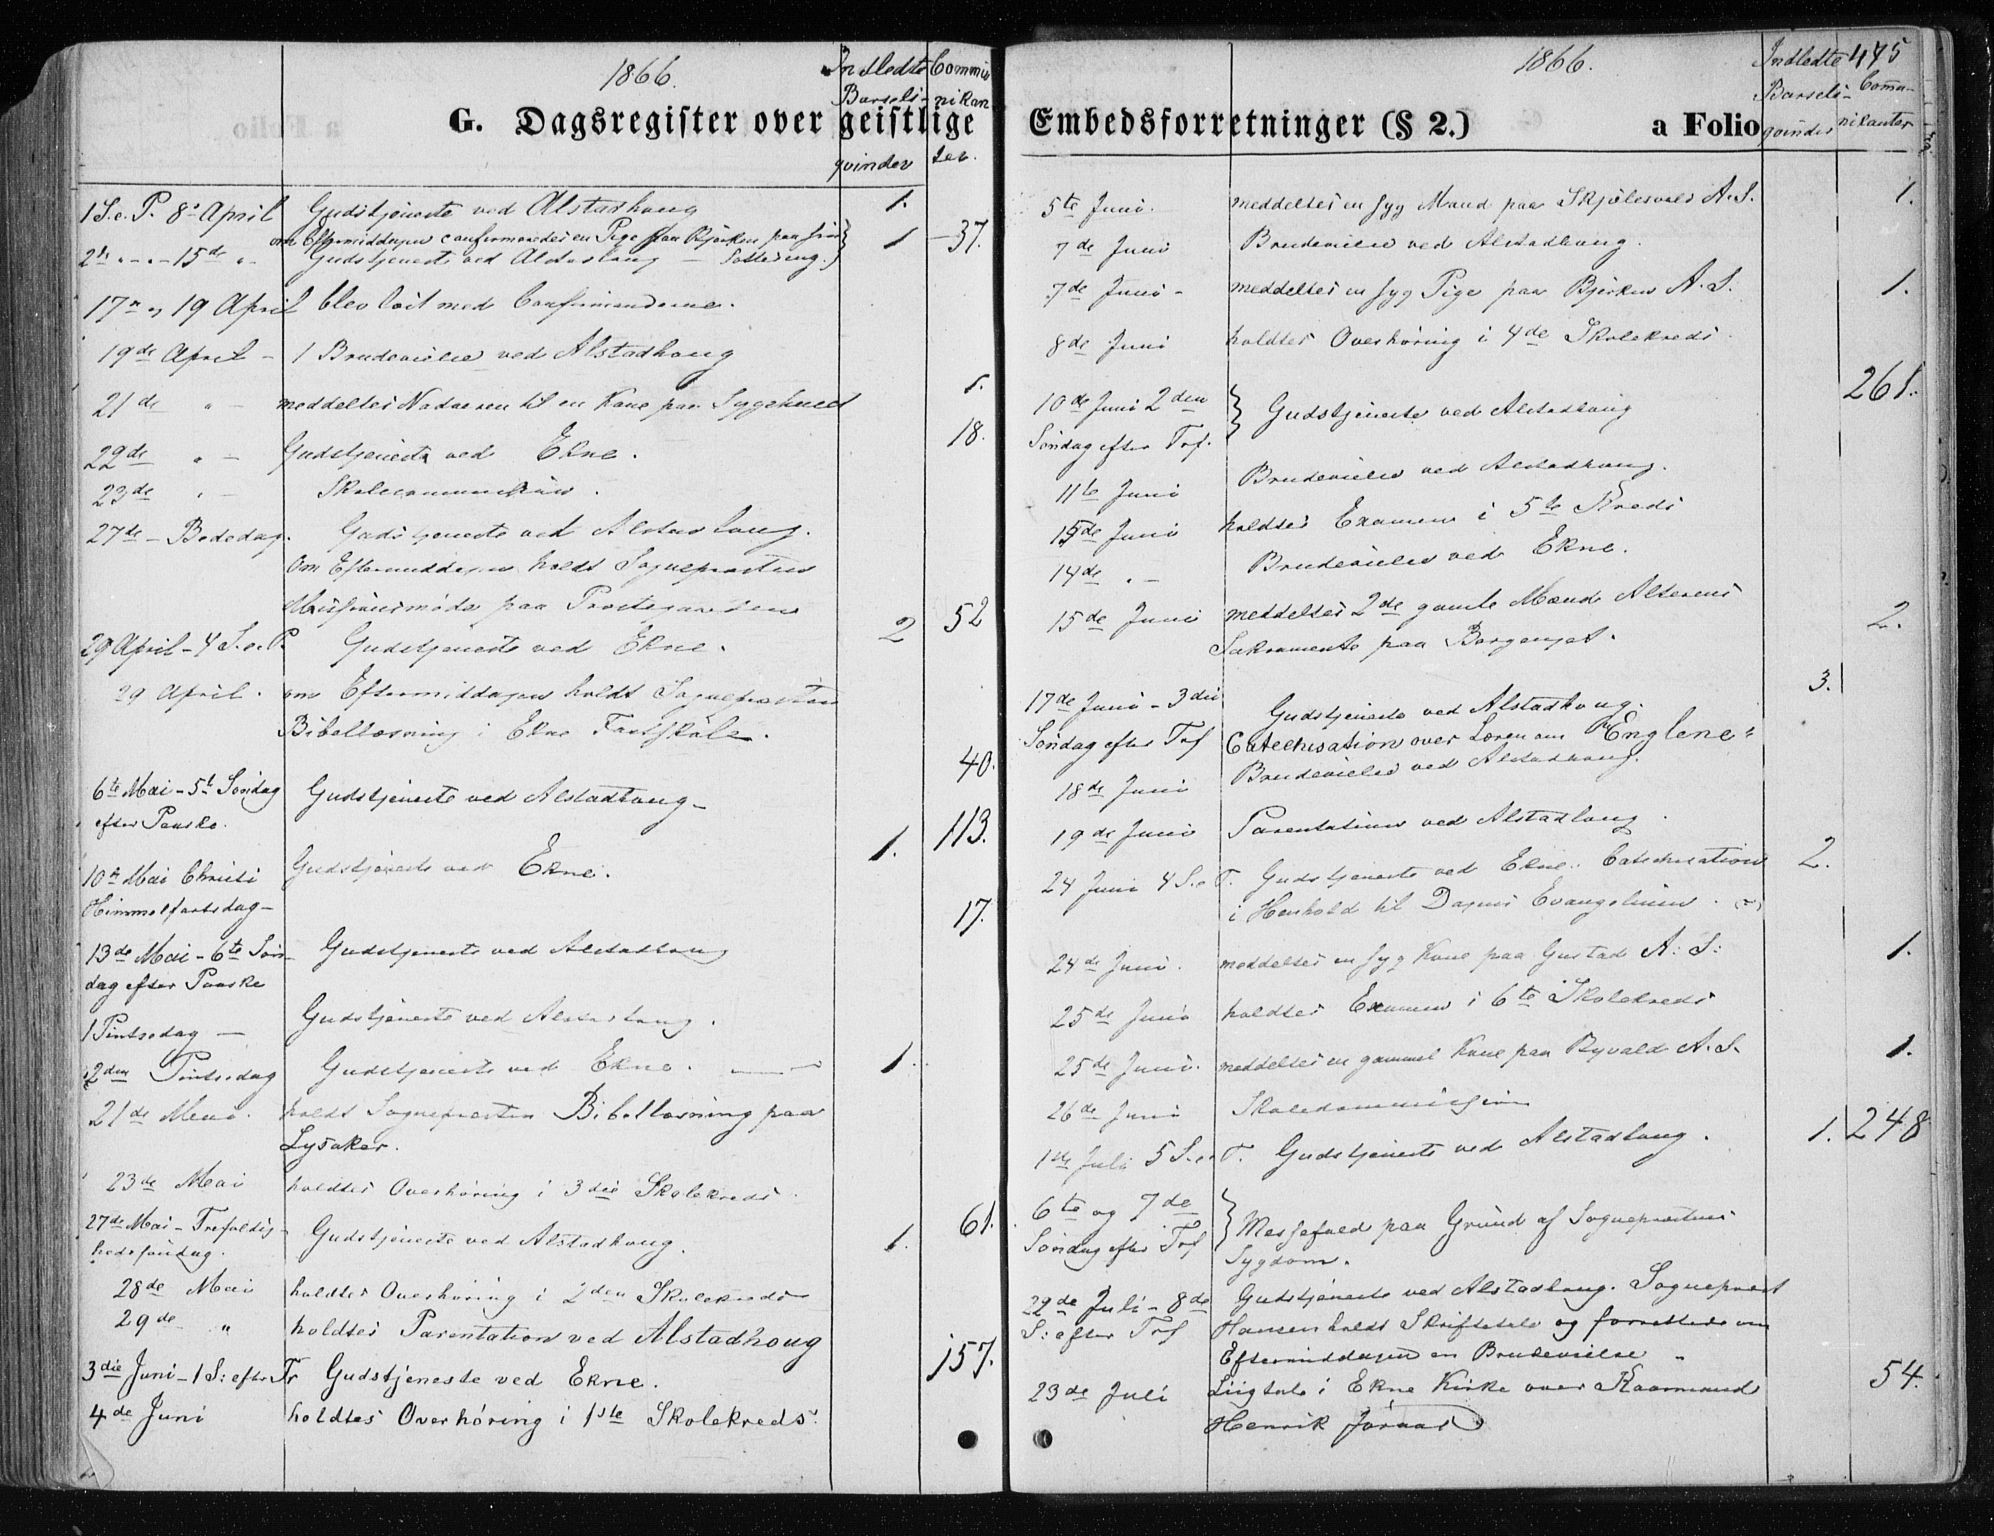 1866.
Indledte Barsels- qvinder
Commu nikan ter.
G. Dagsregister over geistlige
1 S. e. P. 8de April Gudstjeneste ved Alstadhoug 1.
om Eftermiddagen confirmeredes en Pige fra Bjørken paa sin
2den " - " - 15de " - Gudstjeneste ved Alstadhoug - Sotteseng. } 1 - 37.
17de og 19 April blev læst med Confirmanderne.
19de April - 1 Brudevielse ved Alstadhoug
21de " - meddeltes Nadveren til en Kone paa Sygehuset 1.
22de " - Gudstjeneste ved Ekne. 18.
23de " - Skolecommission.
27de - Bededag. Gudstjeneste ved Alstadhoug.
Om Eftermiddagen holdt Sognepræsten
Missionsmøde paa Prestegaarden
29 April - 4 S. e. P. Gudstjeneste ved Ekne. 2 52
29 April. om Eftermiddagen holdt Sognepræsten
Bibellæsning i Ekne Fastskole.
6te Mai - 5te Søndag Gudstjeneste ved Alstadhoug - 40.
efter Paaske.
10de Mai Christi Gudstjeneste ved Ekne. 1. 113.
Himmelfartsdag -
13de Mai - 6te Søn- Gudstjeneste ved Alstadhoug 17.
dag efter Paaske
1 Pintsedag - Gudstjeneste ved Alstadhoug.
2den Pintsedag Gudstjeneste ved Ekne. 1.
21de Mai. holdt Sognepræsten Bibellæsning paa
Lysaker.
23de Mai holdtes Overhøring i 3die Skolekreds.
27de Mai - Trefoldig- Gudstjeneste ved Alstadhoug. 1. 61.
hedssøndag.
28de Mai holdtes Overhøring i 2den Skolekreds
29de " holdtes Parentation ved Alstadhoug
3die Juni - 1 S: efter Tr Gudstjeneste ved Ekne. 157.
4de Juni holdtes Overhøring i 1ste Skolekreds.
1866.
Indledte Barsels- qvinder
475
Commu- nikanter
Embedsforretninger (§ 2.) a Folio
5te Juni. meddeltes en syg Mand paa Skjelesvold A. S. 1.
7de Juni Brudevielse ved Alstadhoug.
7de Juni - meddeltes en syg Pige paa Bjørken A. S. 1.
8de Juni holdtes Overhøring i 4de Skolekreds.
10de Juni 2den } Gudstjeneste ved Alstadhoug 261.
Søndag efter Tref.
11te Juni Brudevielse ved Alstadhoug.
13de Juni holdtes Examen i 5te Kreds
14de " - Brudevielse ved Ekne.
15de Juni meddeltes 2de gamle Mænd Alterens 2.
Sakramente paa
17de Juni - 3die Gudstjeneste ved Alstadhoug. 3.
Søndag efter Tref Catechisation over Læren om "Englene"
18de Juni Brudevielse ved Alstadhoug.
19de Juni Parentation ved Alstadhoug.
24 Juni 4 S. e T. Gudstjeneste ved Ekne. Catechisation 2.
i Henhold til Dagens Evangelium.
24de Juni. meddeltes en syg Kone paa Gustad A. S: 1.
25de Juni holdtes Examen i 6te Skolekreds
25de Juni. meddeltes en gammel Kone paa Byvald A. S. 1.
26de Juni Skolecommission
1de Juli 5 S. e. T. Gudstjeneste ved Alstadhoug. 1. 248
6te og 7de } Messefald paa Grund af Sognepræstens
Søndag efter Tref Sygdom.
22de Juli - 8de Gudstjeneste ved Alstadhoug. Sognepræst
S: efter Tref Hansen holdt Skriftetale og forrettede om
Eftermiddagen en Brudevielse " 54.
23de Juli Liigtale i Ekne Kirke over Kaarmand
Henrik